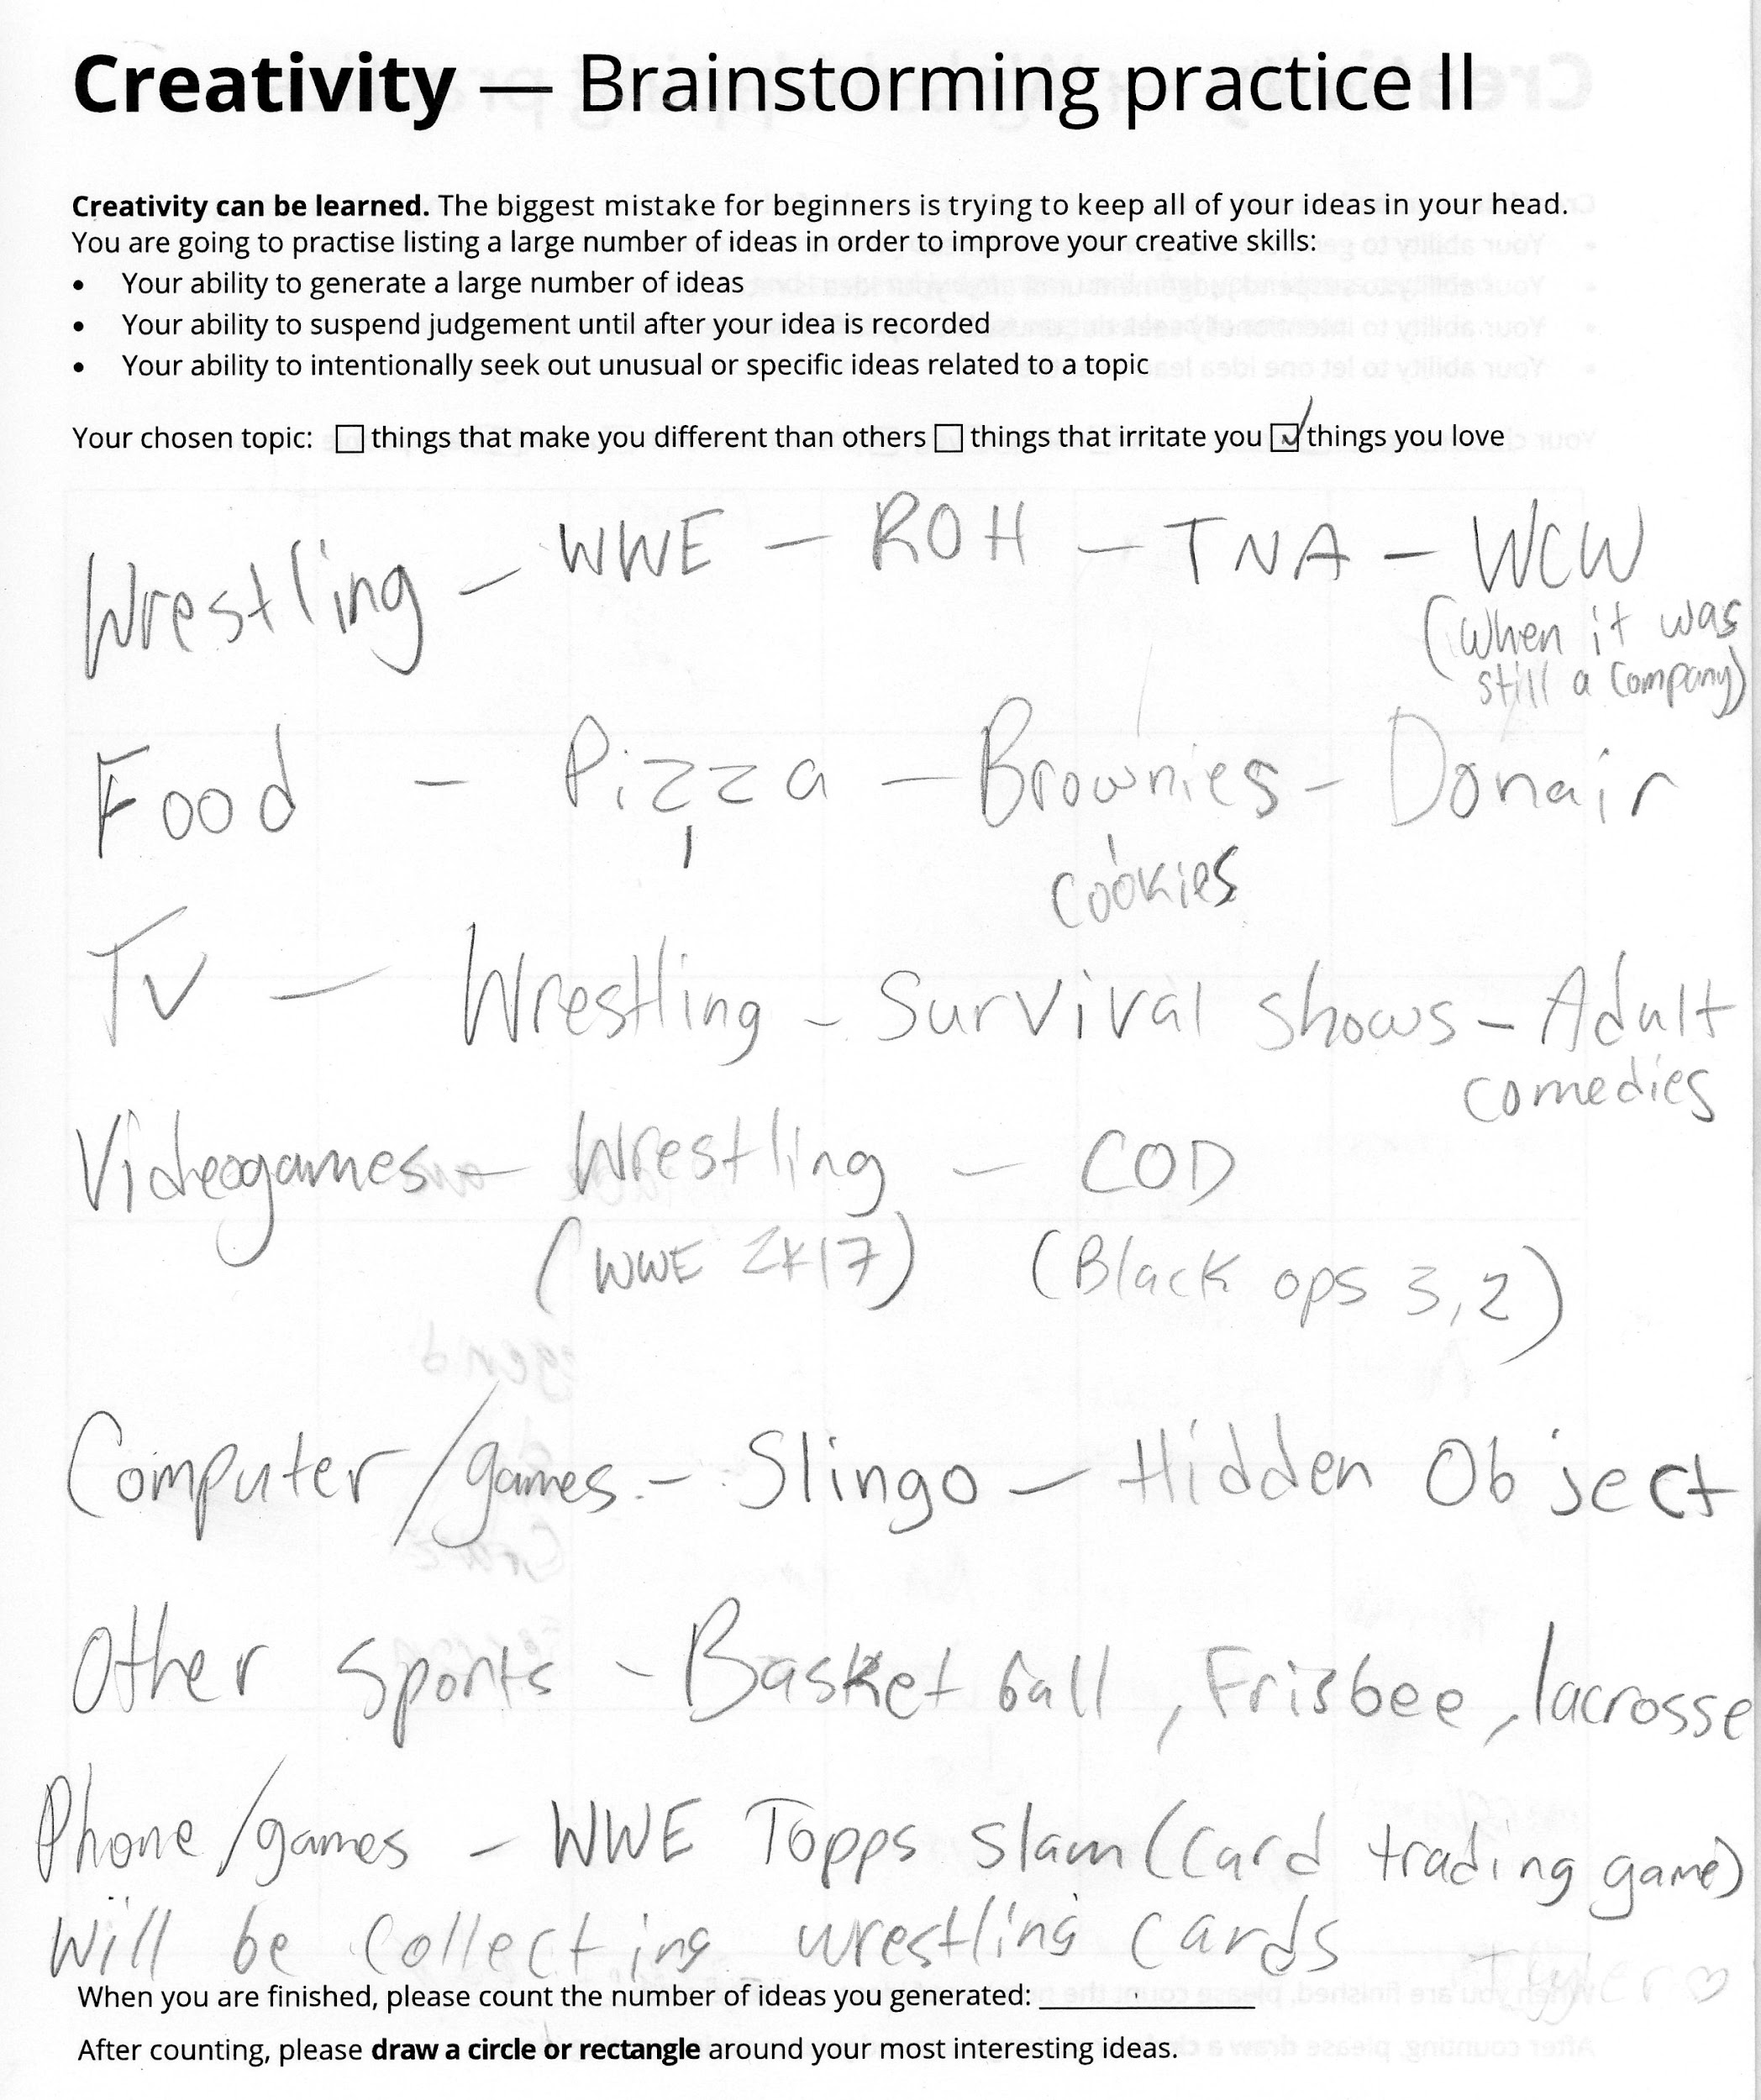 Creativity — Brainstorming practice II
Creativity can be learned. The biggest mistake for beginners is trying to keep all of your ideas in your head.
You are going to practise listing a large number of ideas in order to improve your creative skills:
• Your ability to generate a large number of ideas
• Your ability to suspend judgement until after your idea is recorded
• Your ability to intentionally seek out unusual or specific ideas related to a topic
Your chosen topic: ☐ things that make you different than others ☐ things that irritate you ☑ things you love
Wrestling – WWE – ROH – TNA – WCW
(when it was
still a company)
Food – Pizza – Brownies – Donair
cookies
TV – Wrestling – Survival shows – Adult
comedies
Videogames – Wrestling – COD
(WWE 2K17) (Black ops 3,2)
Computer/games – Slingo – Hidden Object
Other sports – Basketball, Frisbee, lacrosse
Phone/games – WWE Topps slam (card trading game)
Will be collecting wrestling cards
Tyler ♡
When you are finished, please count the number of ideas you generated: ____________
After counting, please draw a circle or rectangle around your most interesting ideas.